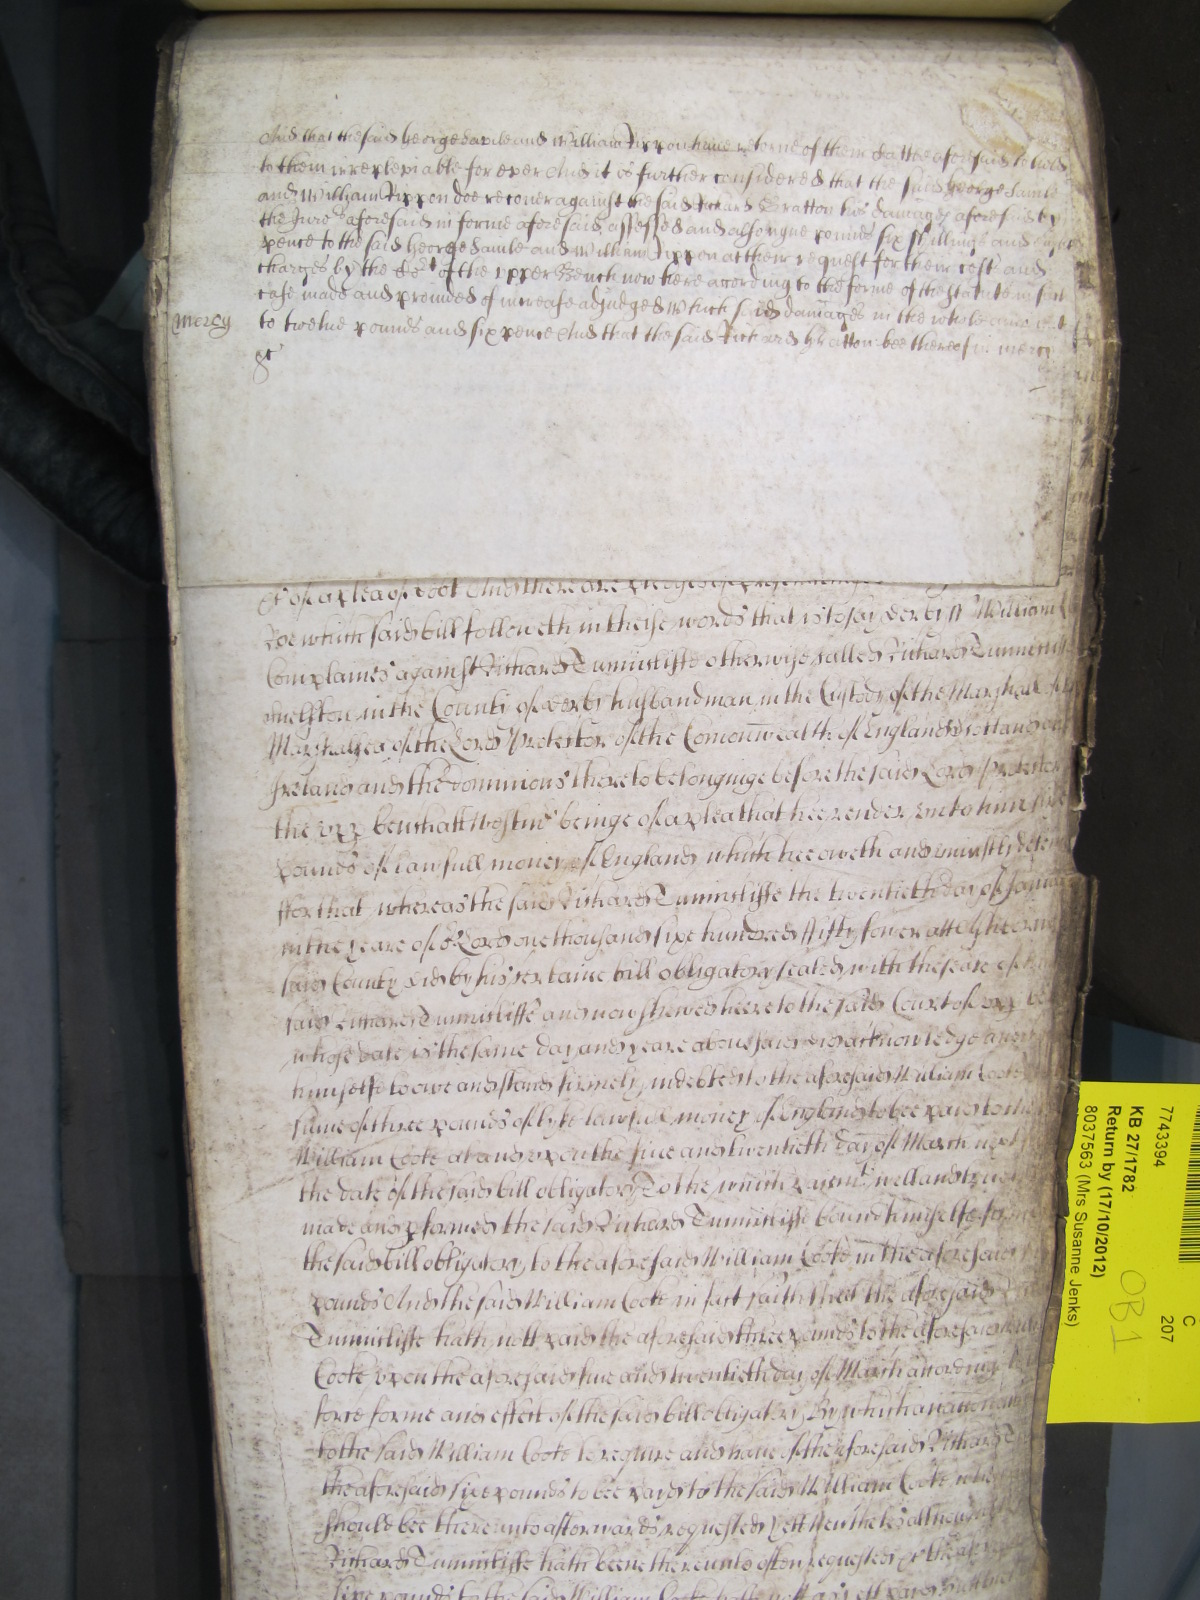 And that the said George Savile and William Rippon have retorne of their Cattle aforesaid to hold
to them irreplepiable for ever And it is further considered that the said George Savile
and William Rippon doe recover against the said Richard Gratton his damages aforesaid by
the Jurors aforesaid in forme aforesaid assessed and alsoe ... pounds six shillings and eight
pence to the said George Savile and William Rippon at their request for their costs and
charges by the Cort of the upper Bench now here according to the forme of the statute in such
case made and provided of increase adjudged Which said damages in the whole amount
to twelve pounds and six pence And that the said Richard Gratton bee thereof in mercy
&c
mercy
&c of a plea of debt And there are pledges of
Roe which said bill followeth in theise words that is to say Derby ss William
Complaines against Richard Tunnicliffe otherwise called Richard Tunnicliffe
in the County of Derby husbandman in the Custody of the Marshall of
Marshalsea of the Lord Protector of the Comonwealth of England Scotland and
Ireland and the dominions thereto belonginge before the said Lord Protector
the upp bench att Westmr beinge of a plea that hee render unto him sixe
pounds of lawfull money of England which hee oweth and uniustly
ffor that whereas the said Richard Tunnicliffe the twentieth day of
in the yeare of or Lord one thousand sixe hundred ffifty fower att
said County did by his certaine bill obligatory sealed with the seale of
said Richard Tunnicliffe and now shewed heere to the said Court of upp
whose date is the same day and yeare abovesaid did acknowledge
himselfe to owe and stand firmely indebted to the aforesaid William Coote
sume of three pounds of lyke lawfull money of England to bee paid to the
William Coote at and upon the five and twentieth day of March next
the date of the said bill obligatory To the which paiemt well and truely
made and pformed the said Richard Tunnicliffe bound himselfe
the said bill obligatory to the aforesaid William Coote in the aforesaid
pounds And the said William Coote in fact saith that the aforesaid
Tunnicliffe hath nott paid the aforesaid three pounds to the aforesaid
Coote upon the aforesaid five and twentieth day of March according
force forme and effect of the said bill obligatory By which
to the said William Coote to require and have of the aforesaid Richard
the aforesaid sixe pounds to bee payd to the said William Coote when
should bee thereunto afterwards requested Yett
Richard Tunnicliffe hath beene thereunto often requested
sixe pounds to the said William Coote hath nott as yett paid
C
207
7743394
KB 27/1782
Return by (17/10/2012)
8037563 (Mrs Susanne Jenks)
OB 1